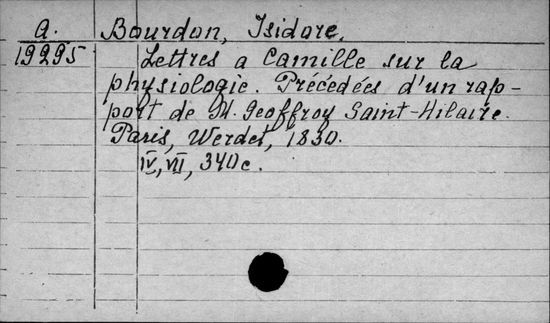 A. Bourdon, Isidore.
19295 Lettres a Camille sur la
physiologie. Précédées d'un rap-
port de M. Geoffroy Saint-Hilaire.
Paris, Werdet, 1830.
IV, VII, 340 c.